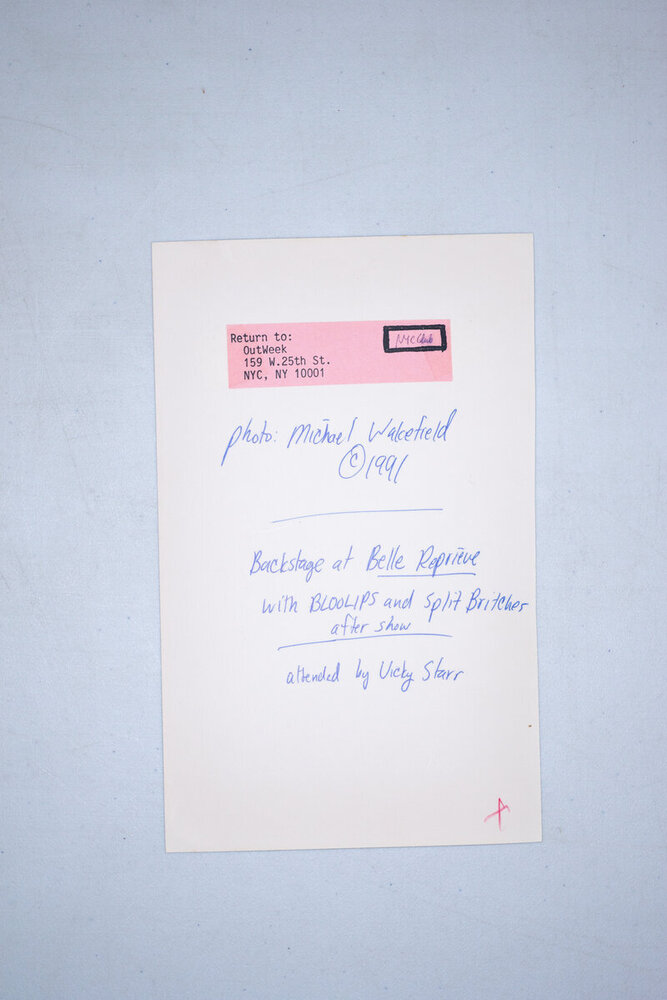 Return to:
OutWeek
159 W.25th St.
NYC, NY 10001
NYC Club
photo: Michael Wakefield
©1991
Backstage at Belle Reprieve
with BLOOLIPS and Split Britches
after show
attended by Vicky Starr